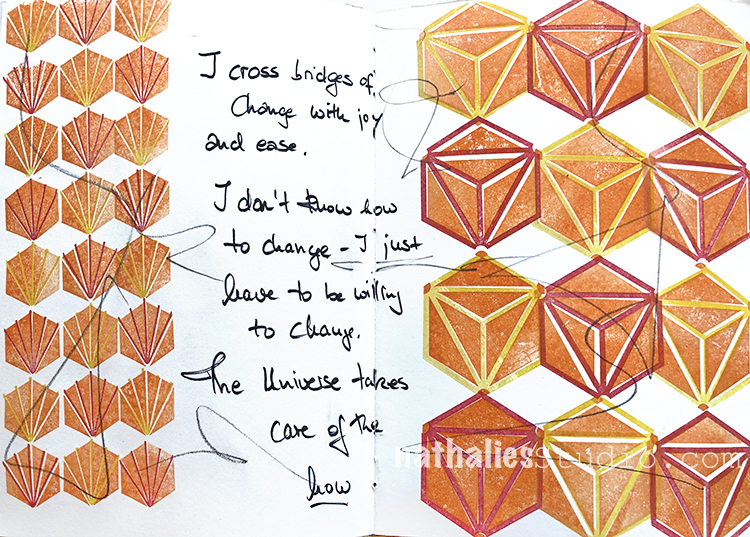 I cross bridges of
Change with joy
and ease.
I don't know how
to change - I just
have to be willing
to change.
The Universe takes
care of the
how
nathaliesstudio.com